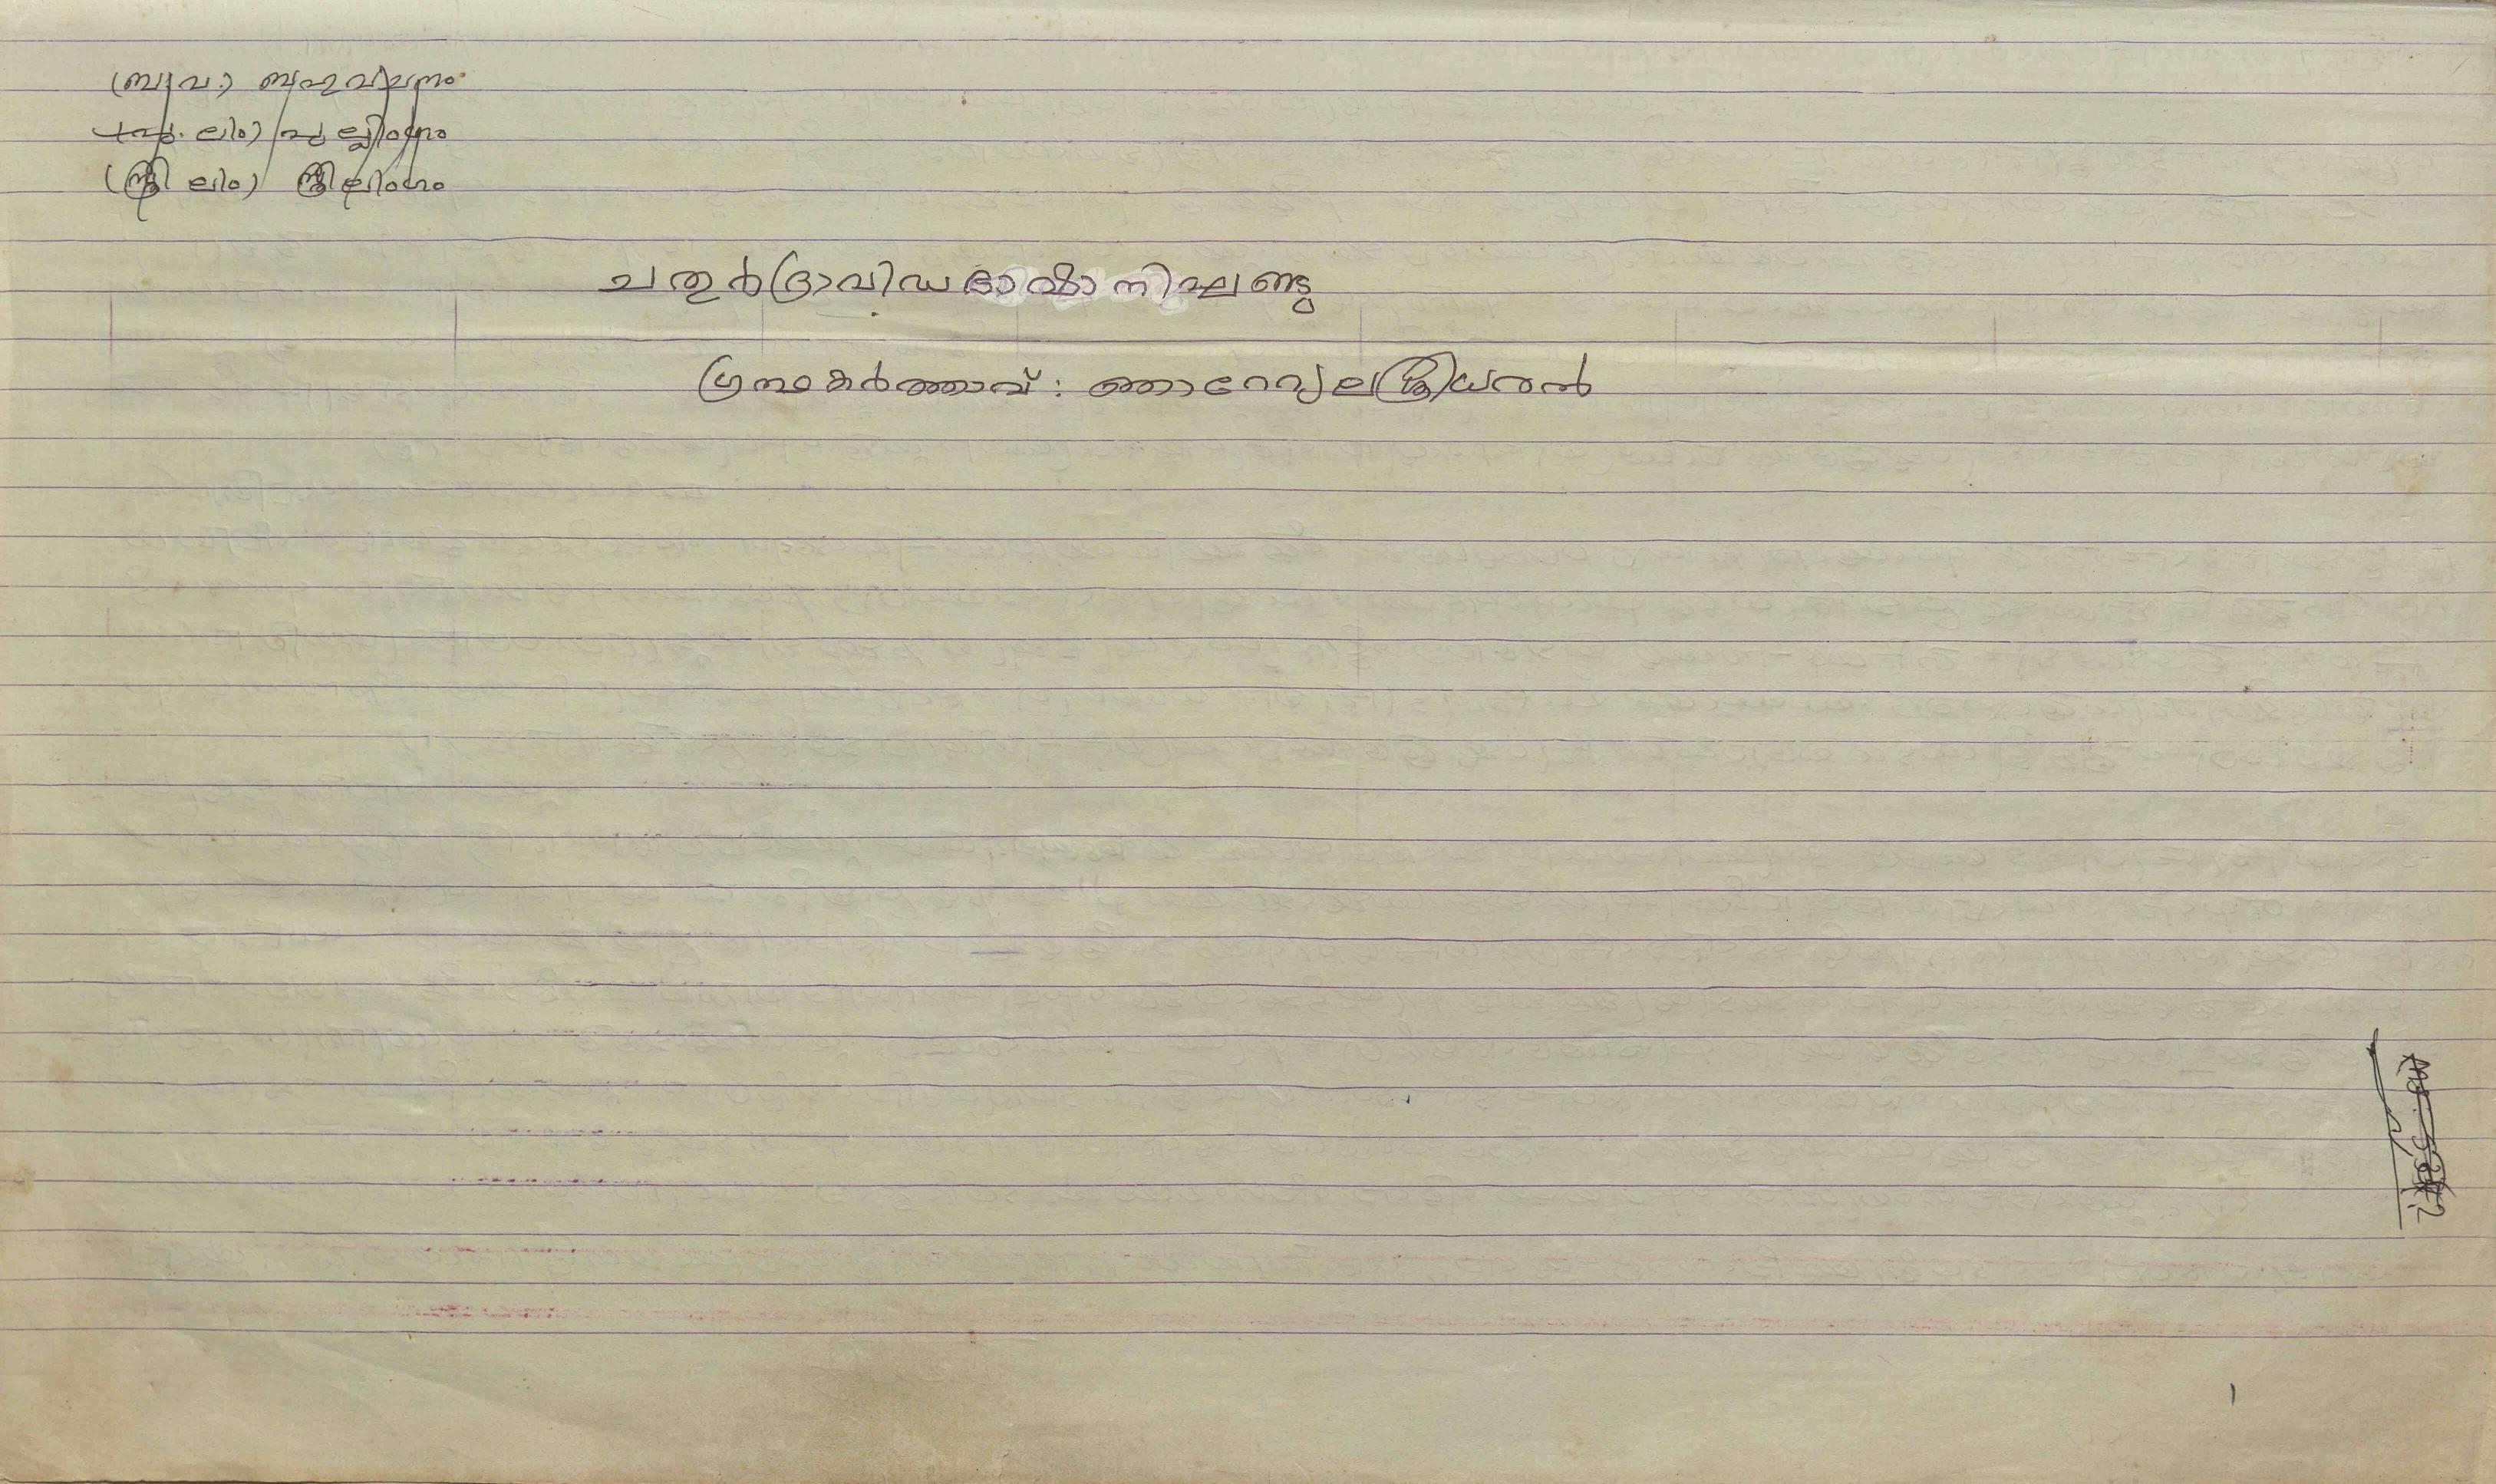 (ബ.വ.) ബഹുവചനം
(പു. ലിം) പുല്ലിംഗം
(സ്ത്രീ ലിം) സ്ത്രീലിംഗം
ചതുർദ്രാവിഡഭാഷാനിഘണ്ടു
ഗ്രന്ഥകർത്താവ് : ഞാറ്റ്യേലശ്രീധരൻ
1